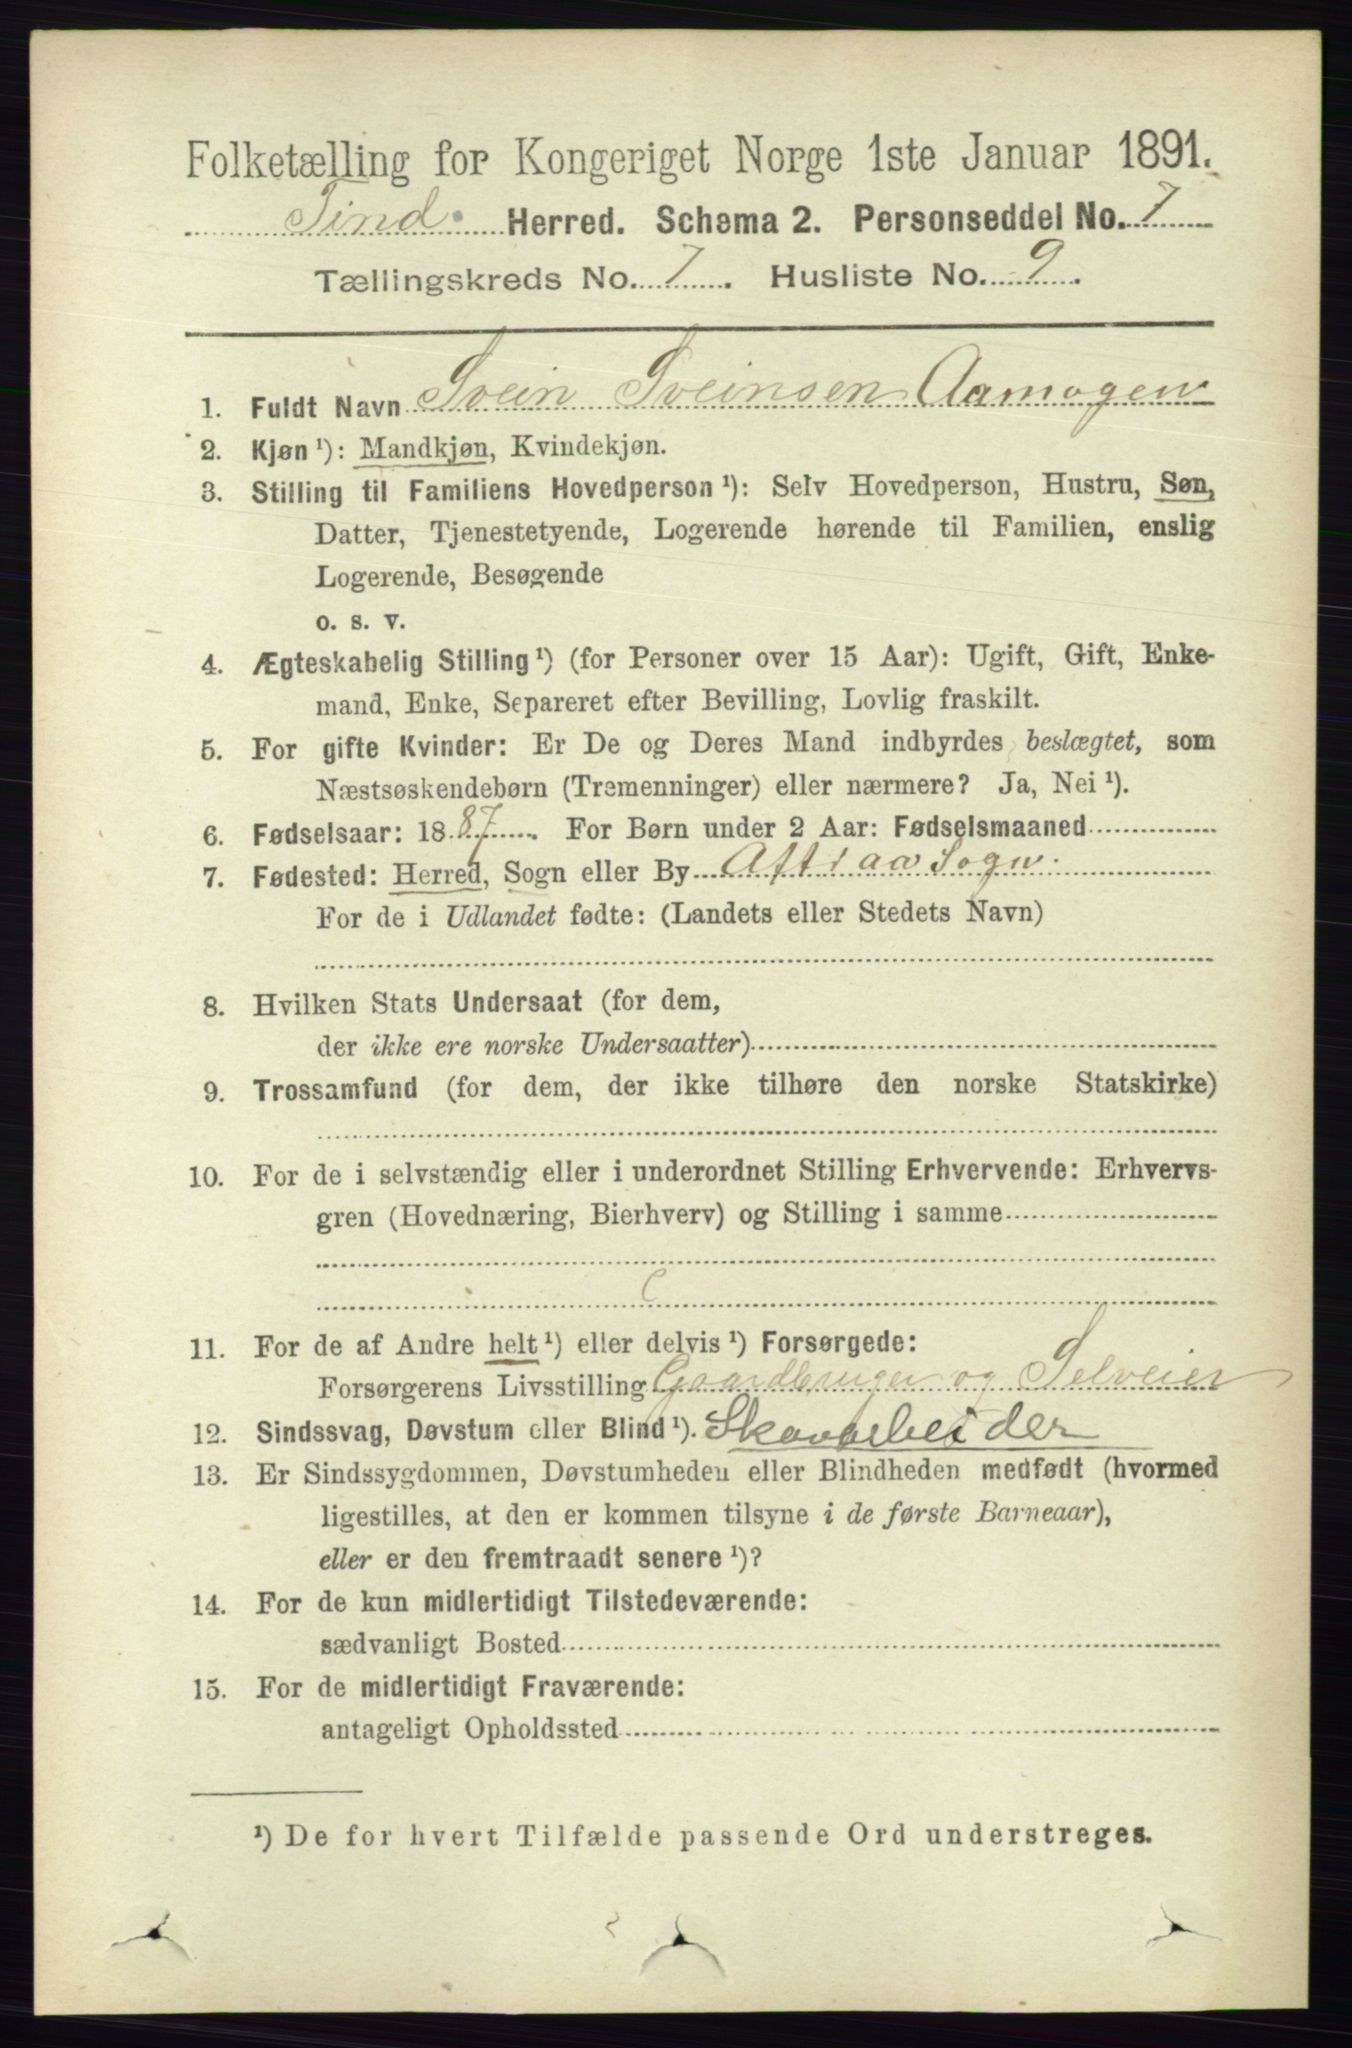 Folketælling for Kongeriget Norge 1ste Januar 1891.
Tind Herred. Schema 2. Personseddel No. 7
Tællingskreds No. 7. Husliste No. 9.
1. Fuldt Navn Svein Sveinsen Aamogen
2. Kjøn ¹): Mandkjøn, Kvindekjøn.
3. Stilling til Familiens Hovedperson ¹): Selv Hovedperson, Hustru, Søn,
Datter, Tjenestetyende, Logerende hørende til Familien, enslig
Logerende, Besøgende
o. s. v.
4. Ægteskabelig Stilling ¹) (for Personer over 15 Aar): Ugift, Gift, Enke-
mand, Enke, Separeret efter Bevilling, Lovlig fraskilt.
5. For gifte Kvinder: Er De og Deres Mand indbyrdes beslægtet, som
Næstsøskendebørn (Tremenninger) eller nærmere? Ja, Nei ¹).
6. Fødselsaar: 1887. For Børn under 2 Aar: Fødselsmaaned
7. Fødested: Herred, Sogn eller By Attraa Sogn.
For de i Udlandet fødte: (Landets eller Stedets Navn)
8. Hvilken Stats Undersaat (for dem,
der ikke ere norske Undersaatter)
9. Trossamfund (for dem, der ikke tilhøre den norske Statskirke)
10. For de i selvstændig eller i underordnet Stilling Erhvervende: Erhvervs-
gren (Hovednæring, Bierhverv) og Stilling i samme
c
11. For de af Andre helt ¹) eller delvis ¹) Forsørgede:
Forsørgerens Livsstilling Gaardbruger og Selveier
12. Sindssvag, Døvstum eller Blind ¹). Skovarbeider
13. Er Sindssygdommen, Døvstumheden eller Blindheden medfødt (hvormed
ligestilles, at den er kommen tilsyne i de første Barneaar),
eller er den fremtraadt senere ¹)?
14. For de kun midlertidigt Tilstedeværende:
sædvanligt Bosted
15. For de midlertidigt Fraværende:
antageligt Opholdssted
¹) De for hvert Tilfælde passende Ord understreges.